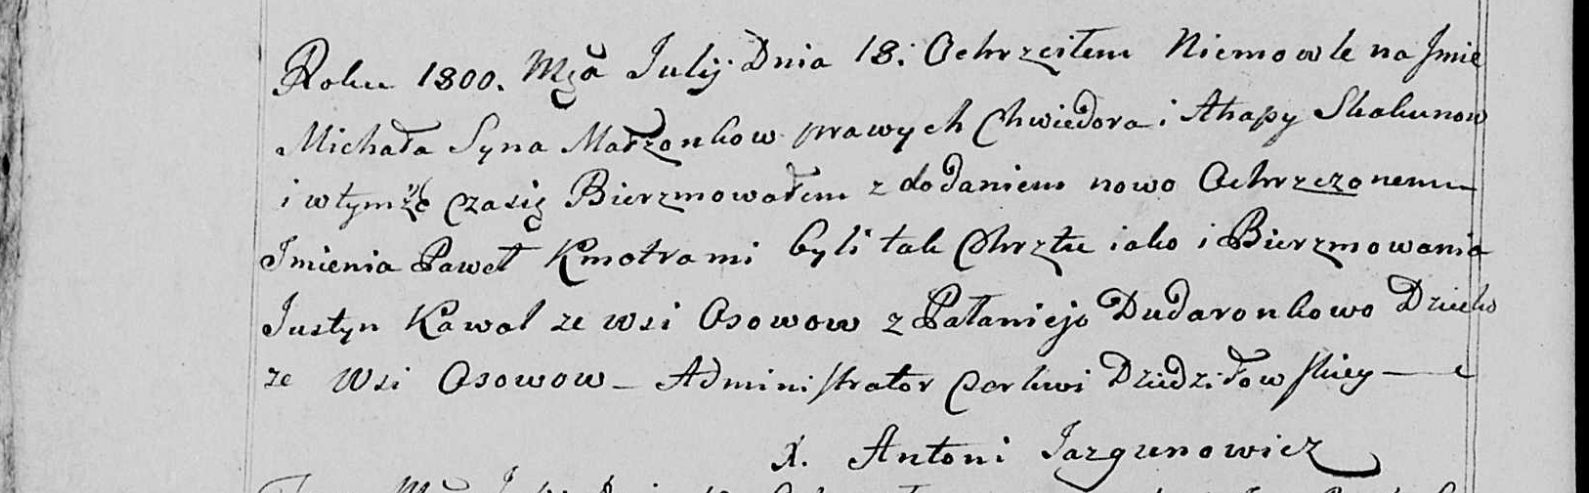 Roku 1800. Mca Julij. Dnia 18. Ochrzciłem Niemowle na Jmie
Michała Syna Małżonkow prawych Chwiedora i Ahapy Skakunow
i wtymże czasię Bierzmowałem z dodaniem nowo Ochrzczonemu
Jmienia Paweł Kmotrami byli tak Chrztu iako i Bierzmowania
Justyn Kawal ze wsi Osowow z Pałanieją Dudaronkowo
ze Wsi Osowow – Administrator Cerkwi Dziedziłowskiey –
X. Antoni Jazgunowicz